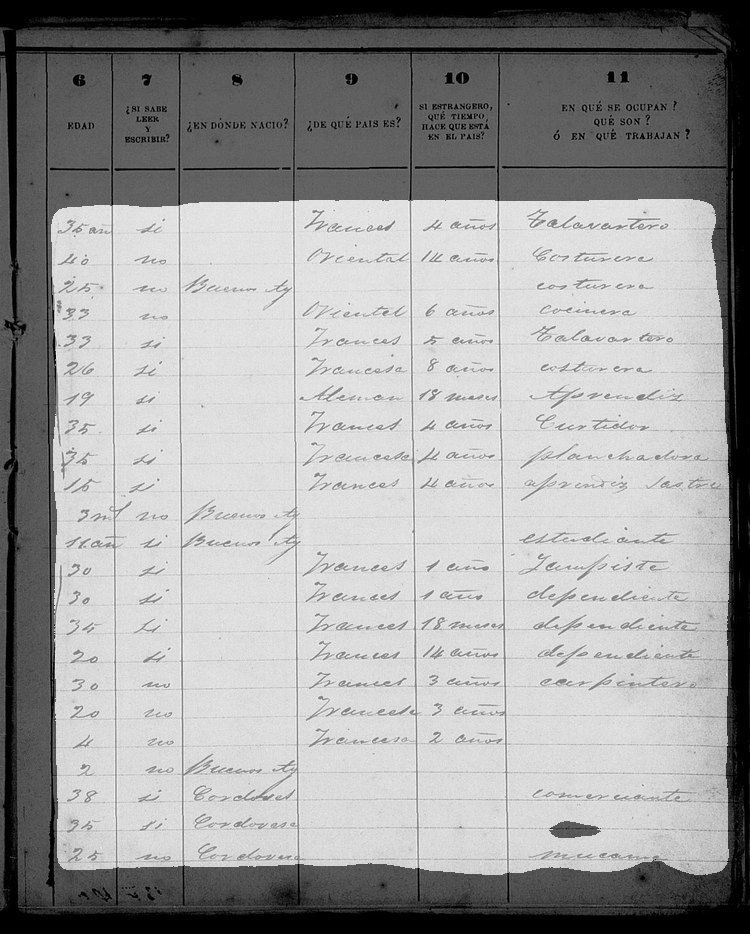 6 7 8 9 10 11
EDAD ¿SI SABE LEER Y ESCRIBIR? ¿EN DÓNDE NACIO? ¿DE QUÉ PAIS ES? SI ESTRANGERO, QUÉ TIEMPO, HACE QUE ESTÁ EN EL PAIS? EN QUÉ SE OCUPAN? QUÉ SON? Ó EN QUÉ TRABAJAN?
35 añ si Frances 4 años Talavartero
40 no Oriental 14 años Costurera
25 no Buenos Ay costurera
33 no Oriental 6 años cocinera
33 si Frances 5 años Talavartero
26 si Francesa 8 años costurera
19 si Aleman 18 meses Aprendiz
35 si Frances 4 años Curtidor
35 si Francesa 4 años planchadora
15 si Frances 4 años aprendiz Sastre
3 no Buenos Ay
11 añ si Buenos Ay estudiante
30 si Frances 1 año Lampiste
30 si Frances 1 año dependiente
35 si Frances 18 meses dependiente
20 si Frances 14 años dependiente
30 no Frances 3 años carpintero
20 no Francesa 3 años
4 no Francesa 2 años
2 no Buenos Ay
38 si Cordoves comerciante
35 si Cordovesa
25 no Cordovesa mucama